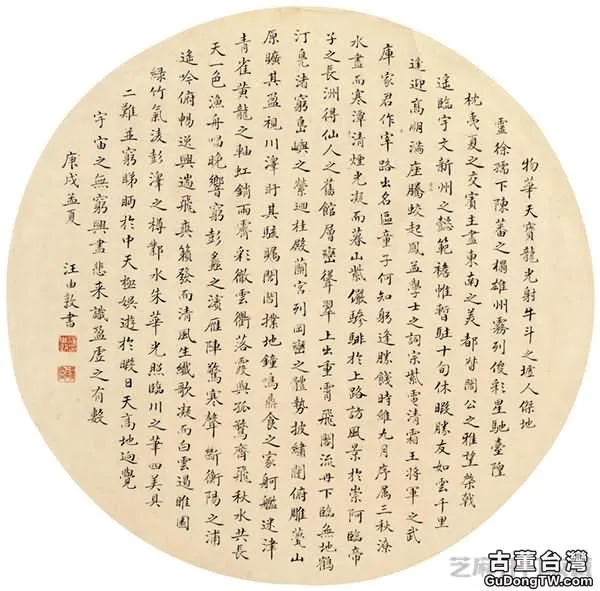 物華天寶龍光射牛斗之墟人傑地
靈徐孺下陳蕃之榻雄州霧列俊彩星馳臺隍
枕夷夏之交賓主盡東南之美都督閻公之雅望棨戟
遙臨宇文新州之懿範襜帷暫駐十旬休暇勝友如雲千里
逢迎高朋滿座騰蛟起鳳孟學士之詞宗紫電清霜王將軍之武
庫家君作宰路出名區童子何知躬逢勝餞時維九月序属三秋潦
水盡而寒潭清煙光凝而暮山紫儼驂騑於上路訪風景於崇阿臨帝
子之長洲得仙人之舊館層巒聳翠上出重霄飛閣流丹下臨無地鶴
汀鳧渚窮島嶼之縈迴桂殿蘭宮列岡巒之體勢披繡闥俯雕甍山
原曠其盈視川澤盱其駭矚閭閻撲地鐘鳴鼎食之家舸艦迷津
青雀黃龍之軸虹銷雨霽彩徹雲衢落霞與孤鶩齊飛秋水共長
天一色漁舟唱晚響窮彭蠡之濱雁陣驚寒聲斷衡陽之浦
遙吟俯暢逸興遄飛爽籟發而清風生纖歌凝而白雲遏睢園
綠竹氣凌彭澤之樽鄴水朱華光照臨川之筆四美具
二難並窮睇眄於中天極娛遊於暇日天高地迥覺
宇宙之無窮興盡悲來識盈虛之有數
庚戌孟夏 汪由敦書
芝麻
古董台灣
GuDongTW.com